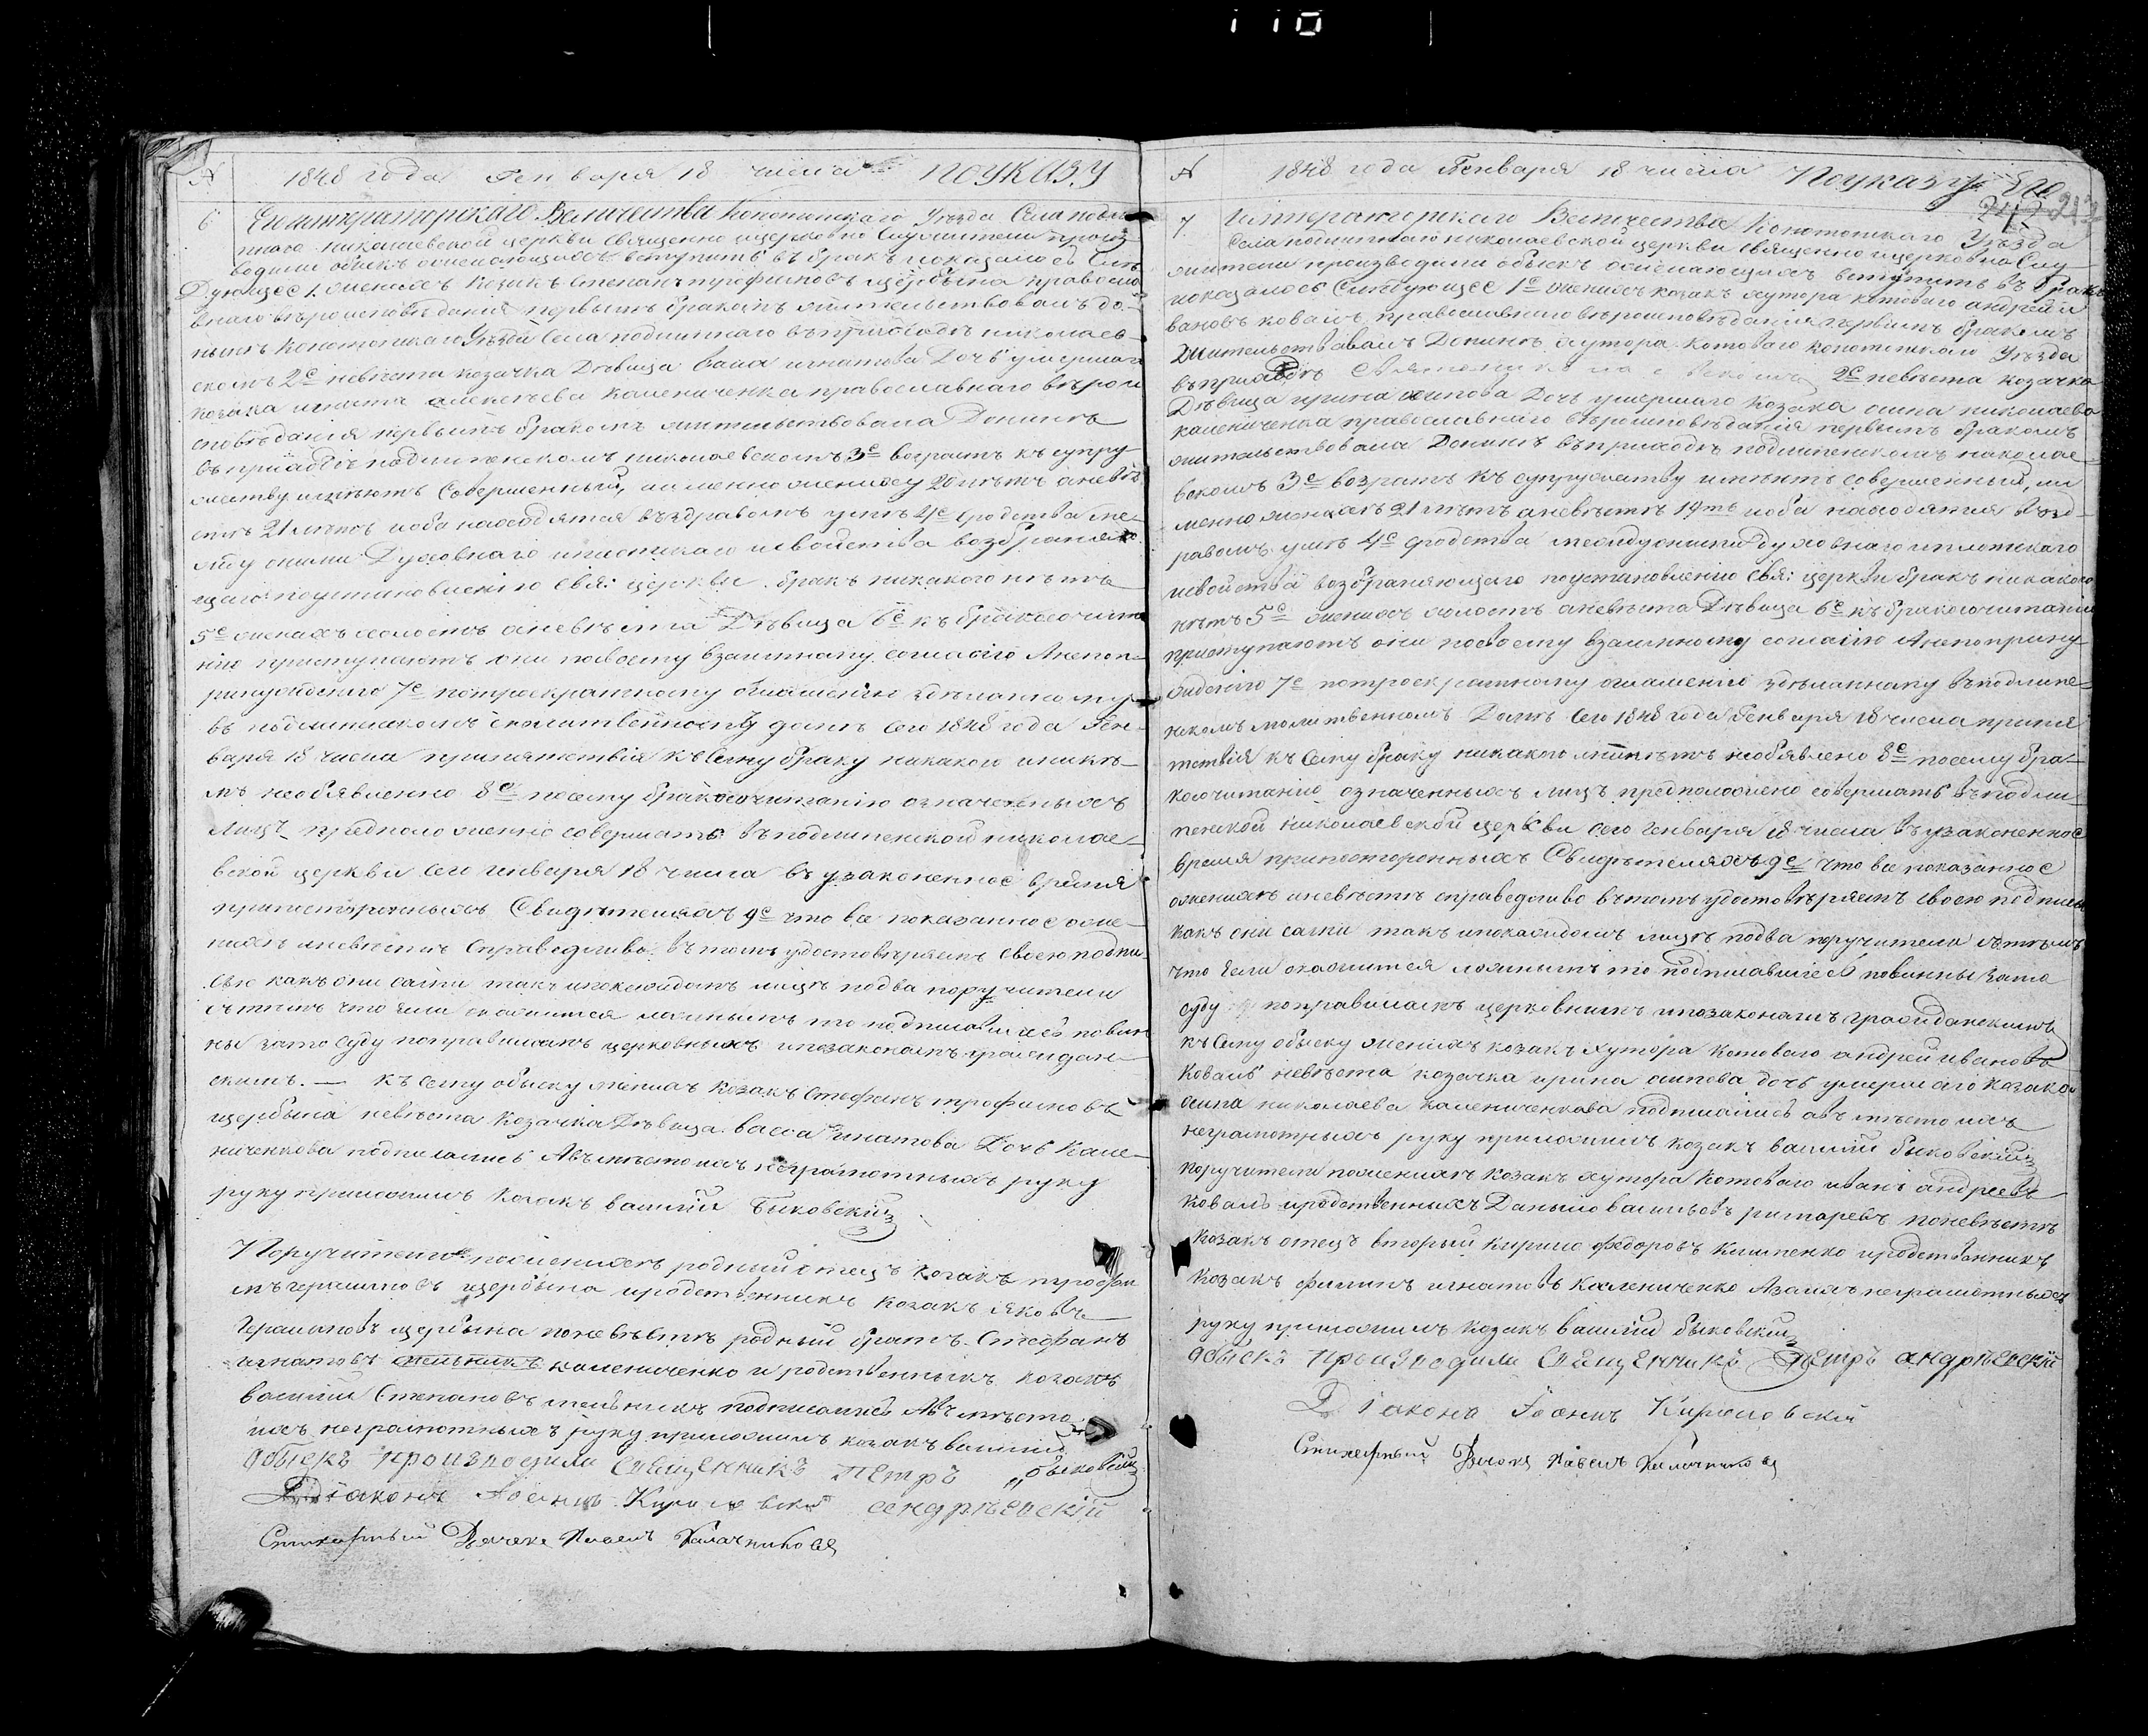 110
№ 1848 года Генваря 18 числа По указу
6 Его Императорскаго Величества Конотопскаго Уезда Села подли
пнаго николаевской церкви священно и церковно служители произ
водили обыск о желающих вступить в брак и показалось Слѣ
дующее 1. жених козак Степан трофимовъ щербына правосла
внаго вѣроисповѣдания первымъ бракомъ жительствовалъ до
нынѣ Конотопскаго Уезда Села подлипнаго въ приходѣ николаев
скомъ 2е невѣста козачка Дѣвица васса игнатова Дочь умершаго
козака игната алексѣева калениченка православнаго вѣрои
сповѣдания первымъ бракомъ жительствовала Донынѣ
въ приходѣ подлипенскомъ николаевскомъ 3е возрастъ къ супру
жеству имѣютъ Совершенный, именно жениху 20 лѣтъ а невѣ
стѣ 21 лѣтъ и оба находятся въ здравомъ умѣ 4е Сродства ме
жду оними Духовнаго и плотскаго и свойства возбраняю
щаго по установлению свя: церкви бракъ никакого нѣтъ
5е женихъ холостъ а невѣста Дѣвица 6е къ бракосочита
нию приступаютъ они по своему взаимному согласию А не по п
ринуждению 7е по троекратному оглашению здѣланному
въ подлипскомъ молитвенномъ домѣ сего 1848 года Ген
варя 18 числа припятствия къ Сему браку никакого и никѣ
мъ необявленно 8е посему бракосочитанию означенныхъ
Лицъ предположенно совершить въ подлипенской николае
вской церкви сего генваря 18 числа въ узаконенное время
при посторонныхъ Свидѣтеляхъ 9е что все показанное о же
нихѣ и невѣстѣ Справедливо въ томъ удостовѣряемъ своею подпи
сью какъ они сами такъ и по каждомъ лицѣ по два поручители
съ тѣмъ что если окажится ложнымъ то подписавшиесь повин
ны за то Суду по правиламъ церковнымъ и по законамъ граждан
скимъ. — Къ сему обыску женихъ Козакъ Стефанъ трофимовъ
щербына невѣста Козачка Дѣвица васса игнатова Дочь Кале
ниченкова подписались А въ мѣсто ихъ неграмотныхъ руку
руку приложилъ Козакъ василий Быковский
Поручители по женихѣ родный отецъ козакъ трофи
мъ герасимовъ щербына и родственникъ козакъ яковъ
Герасимовъ щербына по невѣстѣ родный братъ Стефанъ
игнатовъ мельникъ калениченко и родственникъ козакъ
василий Степановъ мельникъ подписались А въ мѣсто
ихъ неграмотныхъ руку приложилъ козакъ василий
быковский
Обыскъ производили Священникъ Петръ
андрѣевский
Диаконъ Иоаннъ Кириловский
Стихарный Дьячекъ Павелъ Калачниковъ
№ 1848 года Генваря 18 числа По указу Его
213
7 Императорскаго Величества Конотопскаго Уезда
Села подлипнаго николаевской церкви священно и церковно Слу
жители производили обыск о желающихъ вступить въ бракъ
и показалось Слѣдующее 1е женихъ козакъ хутора котоваго андрей и
вановъ коваль православнаго вѣроисповѣдания первымъ бракомъ
Жительствовалъ Донынѣ хутора Котоваго Конотопскаго Уѣзда
въ приходѣ 2е невѣста козачка
Дѣвица ирина осипова Дочь умершаго козака осипа николаева
калениченка православнаго вѣроисповѣдания первымъ бракомъ
жительствовала Донынѣ въ приходѣ подлипенскомъ николае
вскомъ 3е возрастъ къ супружеству имѣютъ совершенный, и
менно женихъ 21 лѣтъ а невѣстѣ 19ть и оба находятия въ зд
равомъ умѣ 4е сродства между оними духовнаго и плотскаго
и свойства возбраняющаго по установлению свя: церкви бракъ никакого
нѣтъ 5е женихъ холостъ а невѣста Дѣвица 6е къ бракосочитанию
приступаютъ они по своему взаимному согласию А не по прину
ждению 7е по троекратному оглашению здѣланному въ подлипе
нскомъ молитвенномъ Домѣ Сего 1848 года Генваря 18 числа припя
тствия къ Сему браку никакого и никѣмъ необявлено 8е посему бра
косочитанию означенныхъ лицъ предположено совершить въ подли
пенской николаевской церкви сего генваря 18 числа въ узаконенное
время при посторонныхъ Свидѣтеляхъ 9е что все показанное
о женихѣ и невѣстѣ справедливо въ томъ удостовѣряемъ своею подписью
какъ они сами такъ и по каждомъ лицѣ по два поручители съ тѣмъ
что Если окажится ложнымъ то подписавшиесь повинны за то
суду по правиламъ церковнымъ и по законамъ гражданскимъ
къ Сему обыску женихъ козакъ хутора котоваго андрей ивановъ
коваль невѣста козачка ирина осипова дочь умершаго козака
осипа николаева калениченкова подписались а въ мѣсто ихъ
неграмотныхъ руку приложилъ козакъ василий быковский
поручители по женихѣ козакъ хутора котоваго иванъ андреевъ
коваль и родственникъ Данило васильевъ римаревъ по невѣстѣ
козакъ отецъ вторый кирило федоровъ клименко и родственникъ
козакъ филипъ игнатовъ калениченко А за ихъ неграмотныхъ
руку приложилъ козакъ василий быковский
Обыскъ производили Священникъ Петръ андрѣевский
Диаконъ Иоаннъ Кириловский
Стихарный Дьячекъ Павелъ Калачниковъ